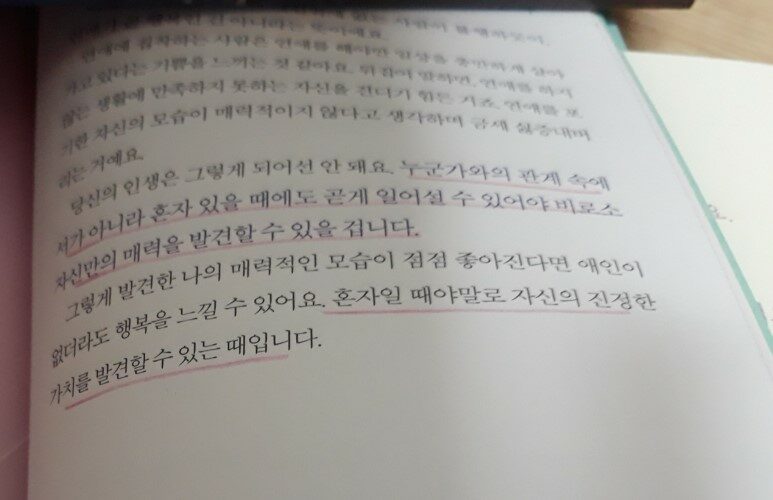 연애에 집착하는 사람은 연애를 해야만 일상을 충만하게 살아
가고 있다는 기쁨을 느끼는 것 같아요. 뒤집어 말하면, 연애를 하지
않는 생활에 만족하지 못하는 자신을 견디기 힘든 거죠. 연애를 포
기한 자신의 모습이 매력적이지 않다고 생각하며 금세 싫증내버
리는 거예요.
당신의 인생은 그렇게 되어선 안 돼요. 누군가와의 관계 속에
서가 아니라 혼자 있을 때에도 곧게 일어설 수 있어야 비로소
자신만의 매력을 발견할 수 있을 겁니다.
그렇게 발견한 나의 매력적인 모습이 점점 좋아진다면 애인이
없더라도 행복을 느낄 수 있어요. 혼자일 때야말로 자신의 진정한
가치를 발견할 수 있는 때입니다.